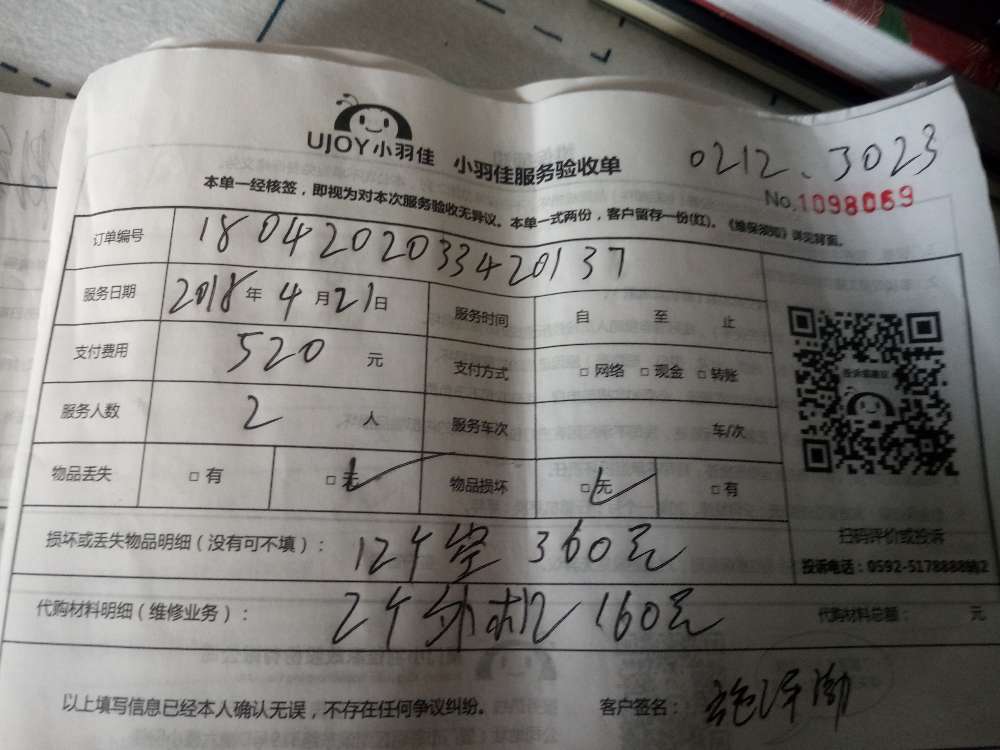 UJOY小羽佳 小羽佳服务验收单 0212.3023
No.1098069
本单一经核签，即视为对本次服务验收无异议。本单一式两份，客户留存一份(红)。《维保须知》详见背面。
订单编号 1804202033420137
服务日期 2018年4月21日 服务时间 自 至 止
支付费用 520 元 支付方式 □网络 □现金 □转账
服务人数 2 人 服务车次 车/次
物品丢失 □有 □无 物品损坏 □无 □有
扫码评价或投诉
投诉电话：0592-5178888转2
损坏或丢失物品明细（没有可不填）： 12个空 360元
代购材料明细（维修业务）： 2个外机 160元 代购材料总额： 元
以上填写信息已经本人确认无误，不存在任何争议纠纷。 客户签名：